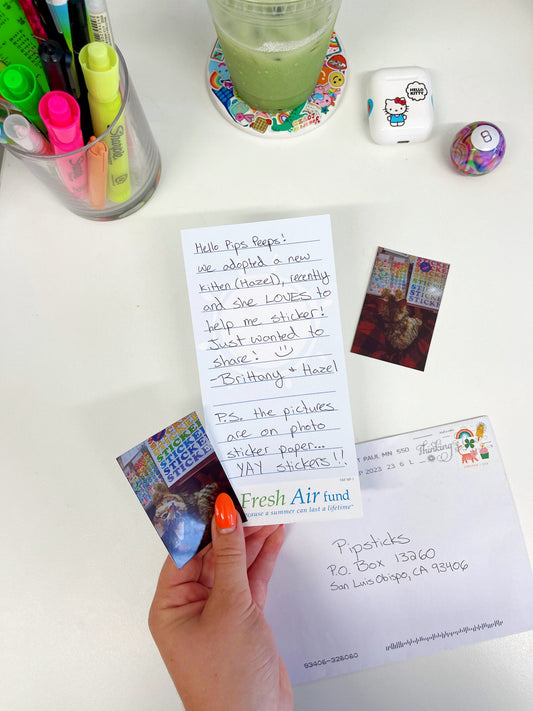 Sharpie
HELLO KITTY
8
Hello Pips Peeps!
we adopted a new
kitten (Hazel), recently
and she LOVES to
help me sticker!
Just wanted to
share! :)
~Brittany + Hazel
P.S. the pictures
are on photo
sticker paper...
YAY stickers!!
Fresh Air fund
because a summer can last a lifetime
STICKER
STICKER
STICKER
STICKER
STICKER
STICKER
STICKER
STICKER
PAUL MN 550
2023 23 6 L
Thinking
Pipsticks
P.O. Box 13260
San Luis Obispo, CA 93406
93406-326060